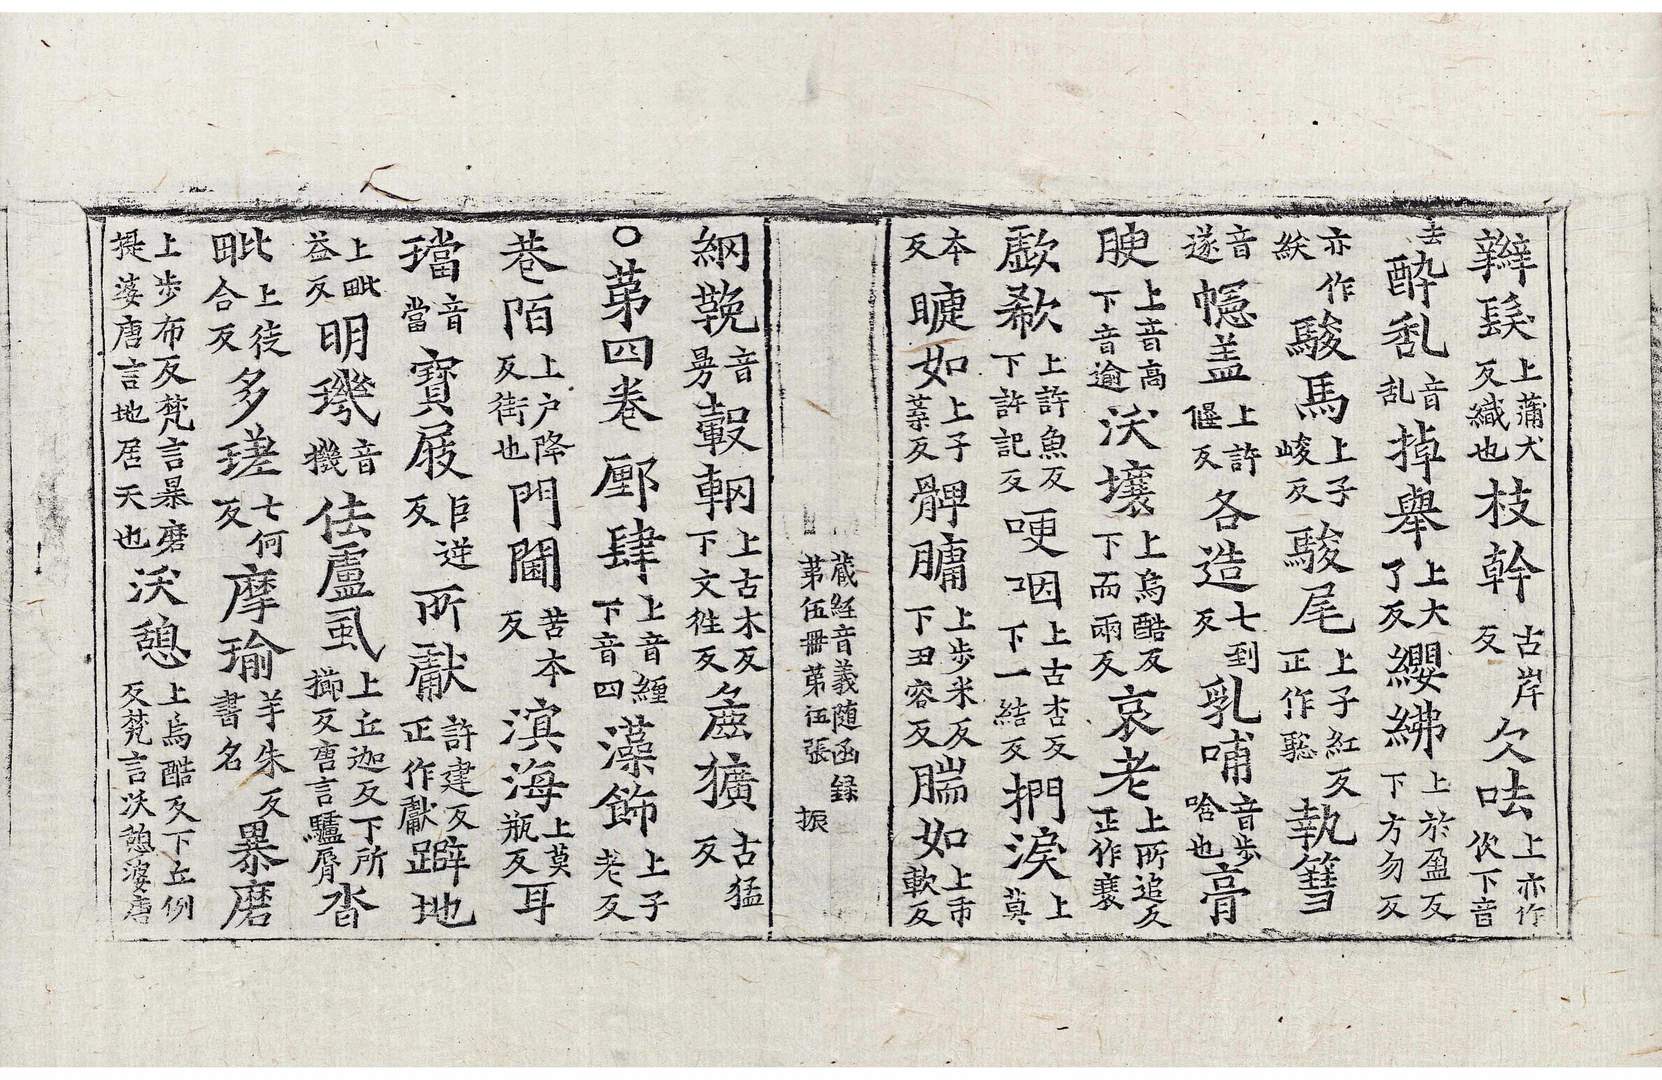 辮髮上蒲犬反織也枝幹古岸反欠呿上亦作㰦下音
去酔乱音乱掉舉上大了反纓紼上於盈反下方勿反
亦作紱駿馬上子峻反駿尾上子紅反正作騣執篲
音遂幰盖上許偃反各造七到反乳哺音步啥也膏
腴上音高下音逾沃壤上烏酷反下而兩反哀老上所追反正作衰
歔欷上許魚反下許記反哽咽上古杏反下一結反捫淚上莫
本反𥇒如上子葉反髀𦟛上步米反下丑容反腨如上市軟反
藏經音義隨函録
第伍冊第伍張 振
網鞔音㝃轂輞上古木反下文徃反麁獷古猛反
○第四卷 𨞬肆上音纏下音四藻飾上子老反
巷陌上户降反街也門閫苦本反溟海上莫瓶反耳
璫音當寶屐巨逆反所獻許建反正作獻躃地
上毗益反明璣音機佉盧虱上丘迦反下所擳反唐言驢脣沓
毗上徒合反多瑳七何反摩瑜羊朱反書名暴磨
上步布反梵言暴磨提婆唐言地居天也沃憩上烏酷反下丘例反梵言沃憩婆唐